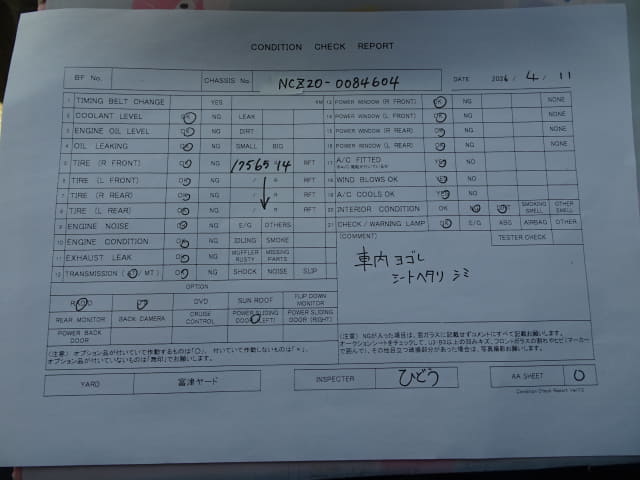 CONDITION CHECK REPORT
BF No. CHASSIS No NCZ20-0084604 DATE 2026 / 4 / 11
1 TIMING BELT CHANGE YES KM
2 COOLANT LEVEL OK NG LEAK
3 ENGINE OIL LEVEL OK NG DIRT
4 OIL LEAKING OK NG SMALL BIG
5 TIRE (R FRONT) OK NG 17565 14 RFT
6 TIRE (L FRONT) OK NG / R RFT
7 TIRE (R REAR) OK NG / R RFT
8 TIRE (L REAR) OK NG / R RFT
9 ENGINE NOISE OK NG E/G OTHERS
10 ENGINE CONDITION OK NG IDLING SMOKE
11 EXHAUST LEAK OK NG MUFFLER RUSTY MISSING PARTS
12 TRANSMISSION (AT/ MT) OK NG SHOCK NOISE SLIP
13 POWER WINDOW (R FRONT) OK NG NONE
14 POWER WINDOW (L FRONT) OK NG NONE
15 POWER WINDOW (R REAR) OK NG NONE
16 POWER WINDOW (L REAR) OK NG NONE
17 A/C FITTED YES NO
18 WIND BLOWS OK YES NO
19 A/C COOLS OK YES NO
20 INTERIOR CONDITION OK NG DIRT SMOKING SMELL OTHER SMELL
21 CHECK / WARNING LAMP OK E/G ABS AIRBAG OTHER
(COMMENT) TESTER CHECK
車内 ヨゴレ
シートヘタリ シミ
OPTION
RADIO DVD SUN ROOF FLIP DOWN MONITOR
REAR MONITOR BACK CAMERA CRUISE CONTROL POWER SLIDING DOOR (LEFT) POWER SLIDING DOOR (RIGHT)
POWER BACK DOOR
(注意) オプション品が付いていて作動するものは「○」、付いていて作動しないものは「×」、
オプション品が付いていないものは「無印」でお願いします。
(注意) NGが入った項目は、窓ガラスに記載せずコメントにすべて記載お願いします。
オークションシートをチェックして、U3・B3以上の凹みキズ、フロントガラスの割れやヒビ(マーカー
で囲んで)、その他目立つ損傷部分があった場合は、写真撮影お願いします。
YARD 富津ヤード INSPECTER ひどう AA SHEET 0
Condition Check Report